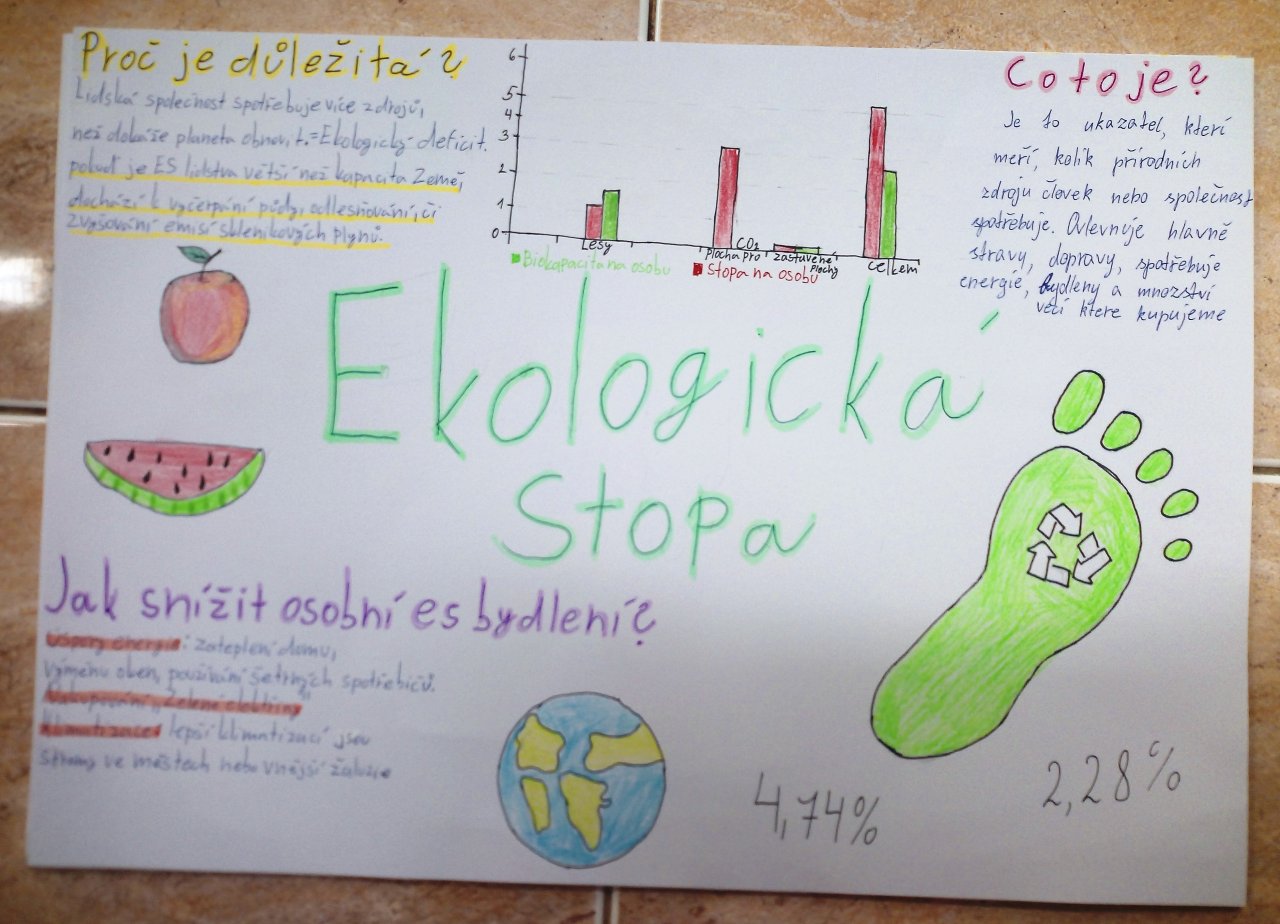 Proč je důležitá?
Lidská společnost spotřebuje více zdrojů,
než dokáže planeta obnovit.=Ekologický deficit.
pokud je ES lidstva větší než kapacita Země,
dochází k vyčerpání půdy, odlesňování, či
zvyšování emisí skleníkových plynů.
6
5
4
3
2
1
0
Lesy
CO2
plocha pro
zastavěné
plochy
celkem
Biokapacita na osobu
Stopa na osobu
Co to je?
Je to ukazatel, kterí
meří, kolik přírodních
zdroju človek nebo společnost
spotřebuje. Ovlevnuje hlavně
stravy, dopravy, spotřebuje
energié, bydleny a mnozství
vecí ktere kupujeme
Ekologická
Stopa
Jak snížit osobní es bydlení?
Úspory energie: Zateplení domu,
výměnu oken, používání šetrných spotřebičů.
Nakupování „Zelené elektřiny"
Klimatizace: lepší klimatizací jsou
stromy ve městech nebo vnější žaluzie
4,74%
2,28%